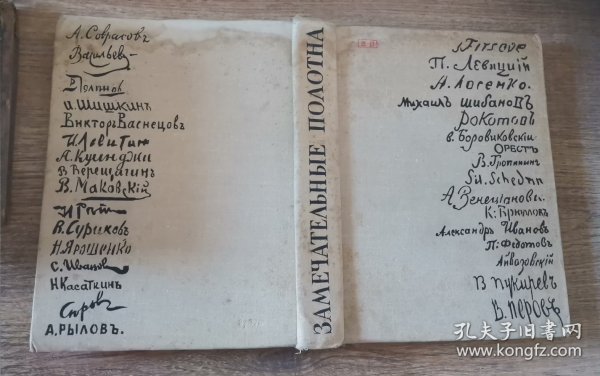 А. Саврасовъ
Васильевъ
В Поленовъ
И. Шишкинъ
Викторъ Васнецовъ
И Левитан
А. Куинджи
В Верещагинъ
В. Маковскій
И Репин
В. Суриковъ
Н Ярошенко
С. Иванов
Н Касаткинъ
Серов
А. РЫЛОВЪ.
ЗАМЕЧАТЕЛЬНЫЕ ПОЛОТНА
П. Левицкій
А. Лосенко.
Михаилъ Шибановъ
Рокотовъ
в. Боровиковскій.
ОРЕСТЪ
В. Тропининъ
Sil. Schedrin
А Венеціановъ.
К. Брюлловъ
Александръ Ивановъ
П. Федотовъ
Айвазовскій
В Пукиревъ
В. Перовъ
孔夫子旧书网
www.kongfz.com